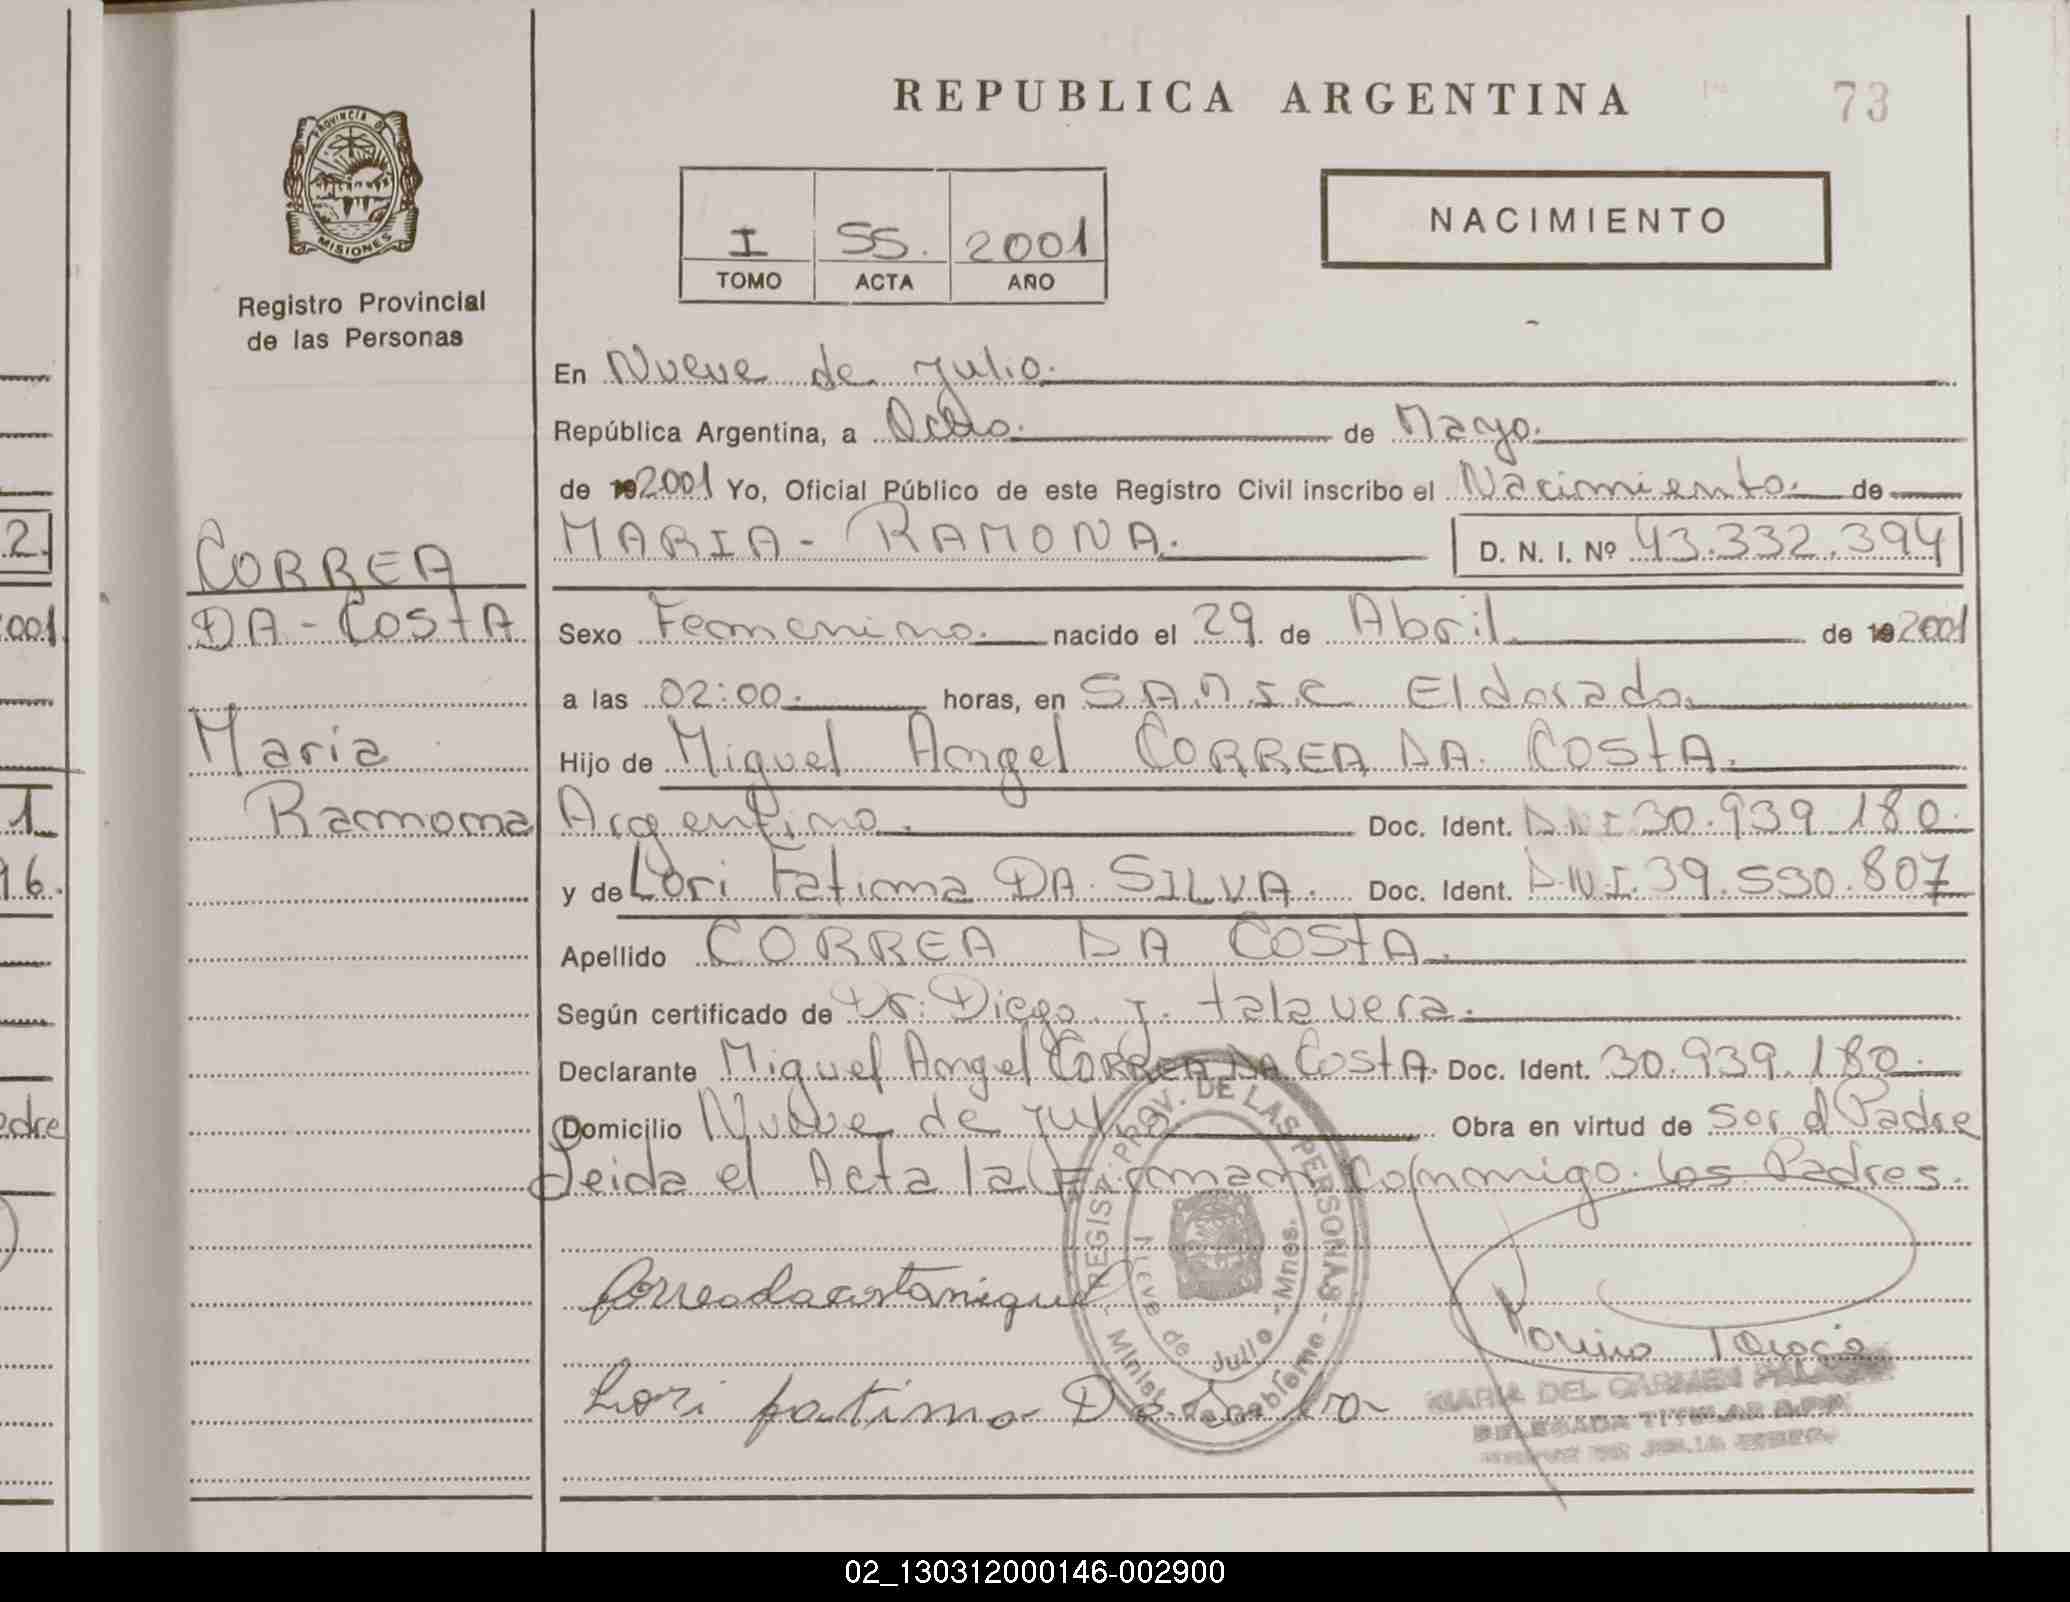 REPUBLICA ARGENTINA
73
PROVINCIA DE
MISIONES
Registro Provincial
de las Personas
I 55. 2001
TOMO ACTA AÑO
NACIMIENTO
En Nueve de Julio.
República Argentina, a Ocho. de Mayo.
de 192001 Yo, Oficial Público de este Registro Civil inscribo el Nacimiento. de
MARIA - RAMONA. D. N. I. Nº 43.332.394
CORREA
DA - COSTA
Maria
Ramona
Sexo Femenino. nacido el 29. de Abril de 192001
a las 02:00. horas, en S.A.M.I.C Eldorado.
Hijo de Miguel Angel CORREA DA COSTA.
Argentino. Doc. Ident. D.N.I. 30.939.180.
y de Lori Fatima DA SILVA. Doc. Ident. D.N.I. 39.590.807
Apellido CORREA DA COSTA.
Según certificado de Dr. Diego J. talavera.
Declarante Miguel Angel CORREA DA COSTA. Doc. Ident. 30.939.180.
Domicilio Nueve de Julio Obra en virtud de Ser el Padre
Leida el Acta la Firman Conmigo los Padres.
REGIST. PROV. DE LAS PERSONAS
Nueve de Julio - Mnes.
Minist. de Gobierno
Correadacostamiguel
Lori fatima Da Silva
MARIA DEL CARMEN
DELEGADA TITULAR R.P.P.
NUEVE DE JULIO
2.
001
1
96.
adre
02_130312000146-002900